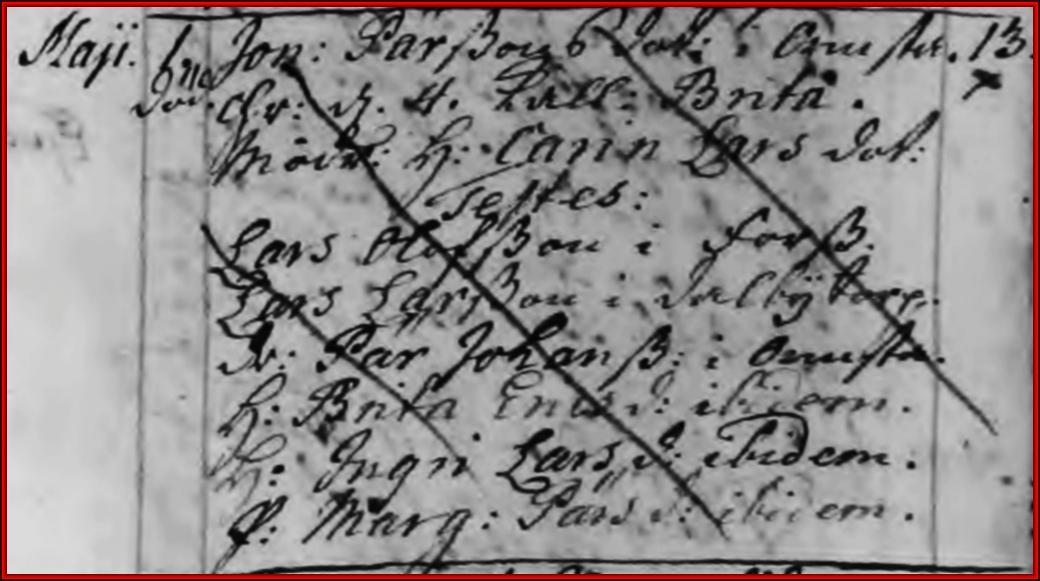 Maji. 1. Jon: Pärßons dot: i Onnsta. 13.
Chr: d. 4. kall: Brita.
Modr: H: Carin Lars dot:
Testes:
Lars Olofßon i Forß.
Lars Larßon i Dalbÿ
Dr: Pär Johanß: i Onnsta.
H: Brita Erics d: ibidem.
H: Ingri Lars d: ibidem.
P: Marg: Pärs d: ibidem.